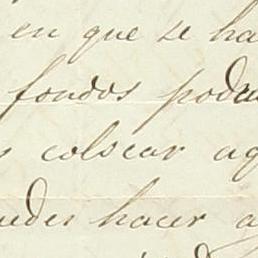 en que se ha
fondos podra
s colocar ag
uedes hacer a